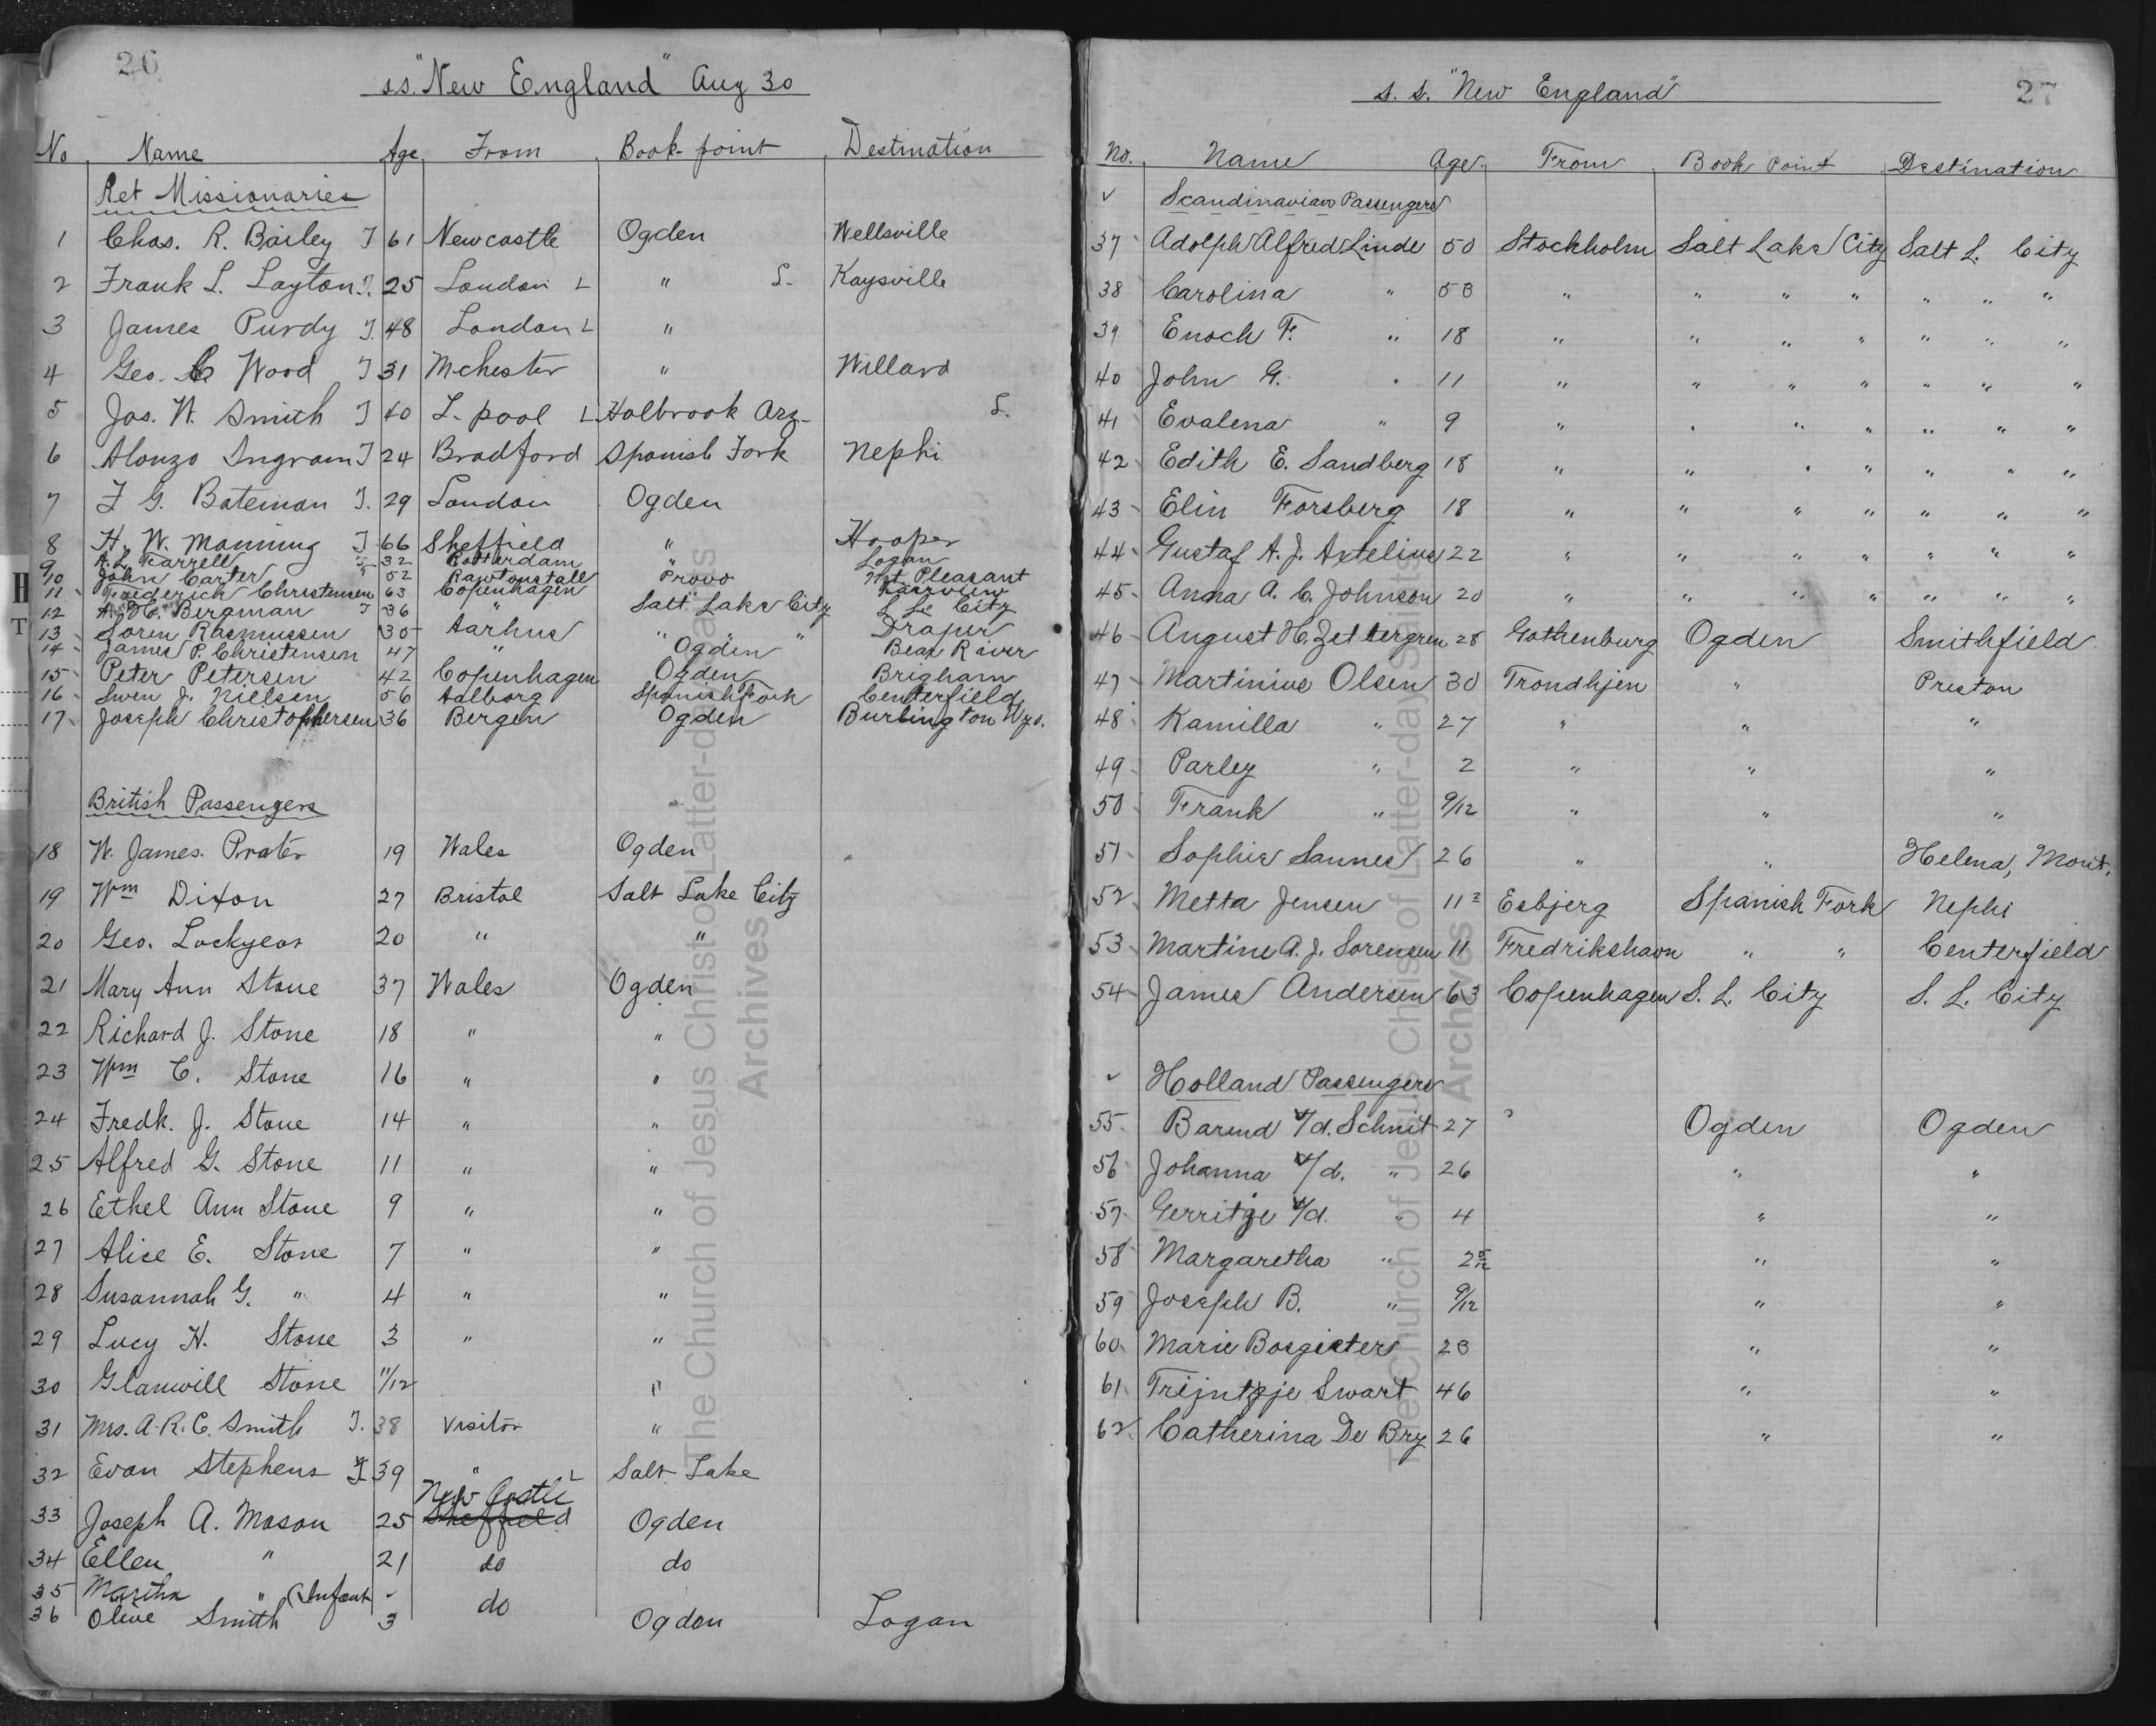 26
ss. "New England" Aug 30
No Name Age From Book point Destination
Ret Missionaries
1 Chas. R. Bailey T 61 Newcastle Ogden Wellsville
2 Frank L. Layton T. 25 London L " L. Kaysville
3 James Purdy T. 48 London L "
4 Geo. C Wood T 31 Mchester " Willard
5 Jos. W. Smith T 40 L-pool L Holbrook Arz- L.
6 Alonzo Ingram T 24 Bradford Spanish Fork Nephi
7 F G. Bateman T. 29 London Ogden
8 H. W. Manning T 66 Sheffield " Hooper
9 A. L. Farrell T 32 Rotterdam " Logan
10 John Carter T 52 Rawtonstall Provo Mt Pleasant
11 Frederich Christensen 63 Copenhagen Fairview
12 A. H. Bergman T 36 " Salt Lake City S. L. City
13 Soren Rasmussen 30 Aarhus " " " Draper
14 James P. Christensen 47 " Ogden Bear River
15 Peter Petersen 42 Copenhagen Ogden Brigham
16 Swen J. Nielsen 56 Aalborg Spanish Fork Centerfield
17 Joseph Christophersen 36 Bergen Ogden Burlington Wyo.
British Passengers
18 W. James. Prater 19 Wales Ogden
19 Wm Dixon 27 Bristol Salt Lake City
20 Geo. Lockyear 20 " "
21 Mary Ann Stone 37 Wales Ogden
22 Richard J. Stone 18 " "
23 Wm C. Stone 16 " "
24 Fredk. J. Stone 14 " "
25 Alfred G. Stone 11 " "
26 Ethel Ann Stone 9 " "
27 Alice E. Stone 7 " "
28 Susannah G. " 4 " "
29 Lucy H. Stone 3 " "
30 Glanwill Stone 11/12 "
31 Mrs. A. R. C. Smith T. 38 Visitor "
32 Evan Stephens T 39 " L Salt Lake
33 Joseph A. Mason 25 Sheffield New Castle Ogden
34 Ellen " 21 do do
35 Martha " (Infant - do
36 Olive Smith 3 Ogden Logan
27
s. s. "New England"
No. Name Age. From Book Point Destination
✓ Scandinavian Passengers
37 Adolph Alfred Linde 50 Stockholm Salt Lake City Salt L. City
38 Carolina " 53 " " " " " " "
39 Enoch F. " 18 " " " " " " "
40 John G. " 11 " " " " " " "
41 Evalena " 9 " " " " " " "
42 Edith E. Sandberg 18 " " " " " " "
43 Elin Forsberg 18 " " " " " " "
44 Gustaf A. J. Artelius 22 " " " " " " "
45 Anna A. C. Johnson 20 " " " " " " "
46 August H. Zettergren 28 Gothenburg Ogden Smithfield
47 Martinius Olsen 30 Trondhjen " Preston
48 Kamilla " 27 " " "
49 Parley " 2 " " "
50 Frank " 9/12 " " "
51 Sophie Sannes 26 " " Helena, Mont.
52 Metta Jensen 11 Esbjerg Spanish Fork Nephi
53 Martine A. J. Sorensen 11 Fredrikshavn " " Centerfield
54 James Andersen 63 Copenhagen S. L. City S. L. City
✓ Holland Passengers
55 Barend v/d. Schnit 27 Ogden Ogden
56 Johanna v/d. " 26 " "
57 Gerritje v/d. " 4 " "
58 Margaretha " 2 5/12 " "
59 Joseph B. " 9/12 " "
60 Marie Bosgieter 23 " "
61 Trijntje Swart 46 " "
62 Catherina De Bry 26 " "
The Church of Jesus Christ of Latter-day Saints
Archives
The Church of Jesus Christ of Latter-day Saints
Archives
H
T